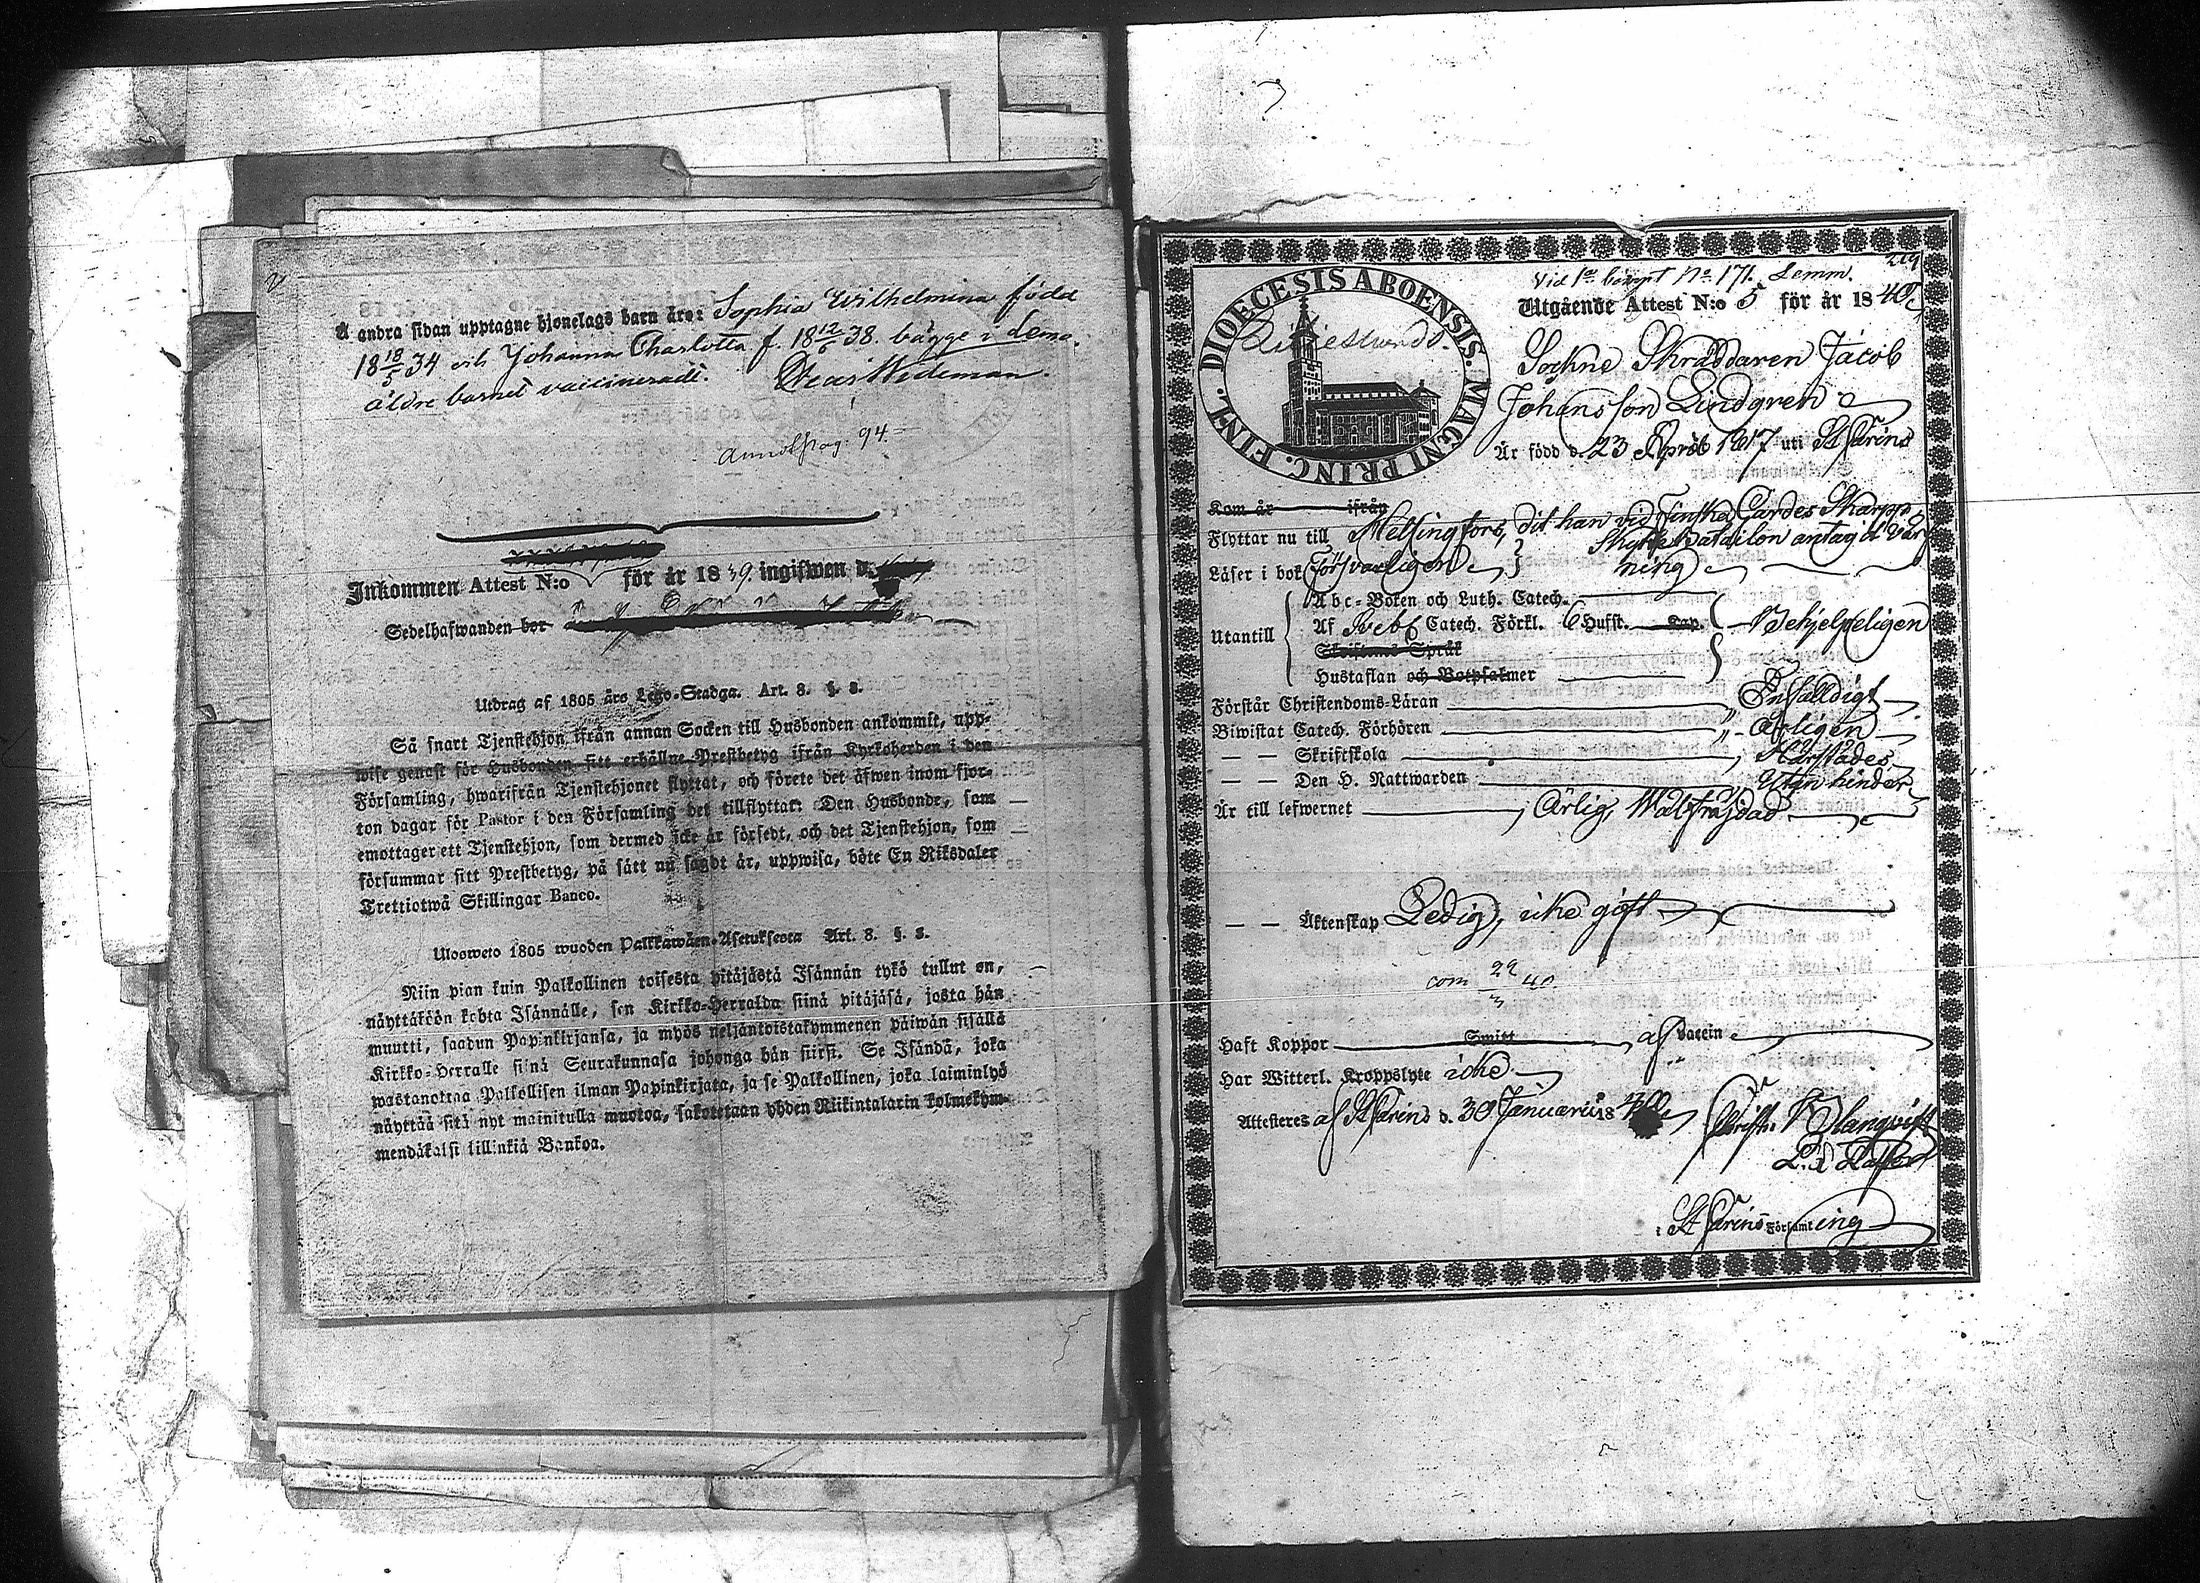 Å andra sidan upptagne hjonelags barn äro: Sophia Wilhelmina född
18 18/5 34 och Johanna Charlotta f. 18 12/6 38. bägge i demo.
äldre barnet vaccineradt. Oscar Wideman.
Annot. pag. 94.
Inkommen Attest N:o för år 1839. ingifwen d.
Sedelhafwanden bor
Utdrag af 1805 års Lego-Stadga. Art. 8. §. 2.
Så snart Tjenstehjon ifrån annan Socken till Husbonden ankommit, upp-
wise genast för Husbonden sitt erhållne Prestbetyg ifrån Kyrkoherden i den
Församling, hwarifrån Tjenstehjonet flyttat, och förete det äfwen inom fjor-
ton dagar för Pastor i den Församling det tillflyttat: Den Husbonde, som
emottager ett Tjenstehjon, som dermed icke är försedt, och det Tjenstehjon, som
försummar sitt Prestbetyg, på sätt nu sagdt är, uppwisa, böte En Riksdaler
Trettiotwå Skillingar Banco.
Ulosweto 1805 wuoden Palkkawäen-Asetuksesta Art. 8. §. 2.
Niin pian kuin Palkollinen toisesta pitäjästä Isännän tykö tullut on,
näyttäköön kohta Isännälle, sen Kirkko-Herralda siinä pitäjäsä, josta hän
muutti, saadun Papinkirjansa, ja myös neljäntoistakymmenen päiwän sisällä
Kirkko-Herralle siinä Seurakunnasa johonga hän siirsi. Se Isändä, joka
wastanottaa Palkollisen ilman Papinkirjata, ja se Palkollinen, joka laiminlyö
näyttää sitä nyt mainitulla muotoa, sakotetaan yhden Riikintalarin kolmekym-
mendäkaksi killinkiä Bankoa.
219
Vid 1:a komp:t N:o 171. Lemm.
DIOECESIS ABOENSIS. MAGNI PRINC. FINL.
Utgående Attest N:o 5 för år 1840
Sockne Skräddaren Jacob
Johansson Lindgren
Är född d. 23 April 1817 uti St Karins
Kom år ifrån
Flyttar nu till Helsingfors, dit han vid Finska Gardes Skarpp-
Skytte Batailon antagit vär-
Läser i bok Försvarligen ning
Utantill
Abc-Boken och Luth. Catech.
Af Svebb Catech. Förkl. 6 Hufst. Cap. Behjelpeligen
Skriftens Språk
Hustaflan och Botpsalmer
Förstår Christendoms-Läran Enfalldigt
Biwistat Catech. Förhören Årligen
— — Skriftskola Härstädes
— — Den H. Nattwarden Utan hinder
Är till lefwernet Ärlig, Wälfräjdad
— — Äktenskap Ledig, icke gift
com 29/3 40.
Haft Koppor Smitt af Vaccin
Har Witterl. Kroppslyte icke
Attesteres af St Karins d. 30 Januarii 1840 Christ. Blanqvist
i St Karins Församling